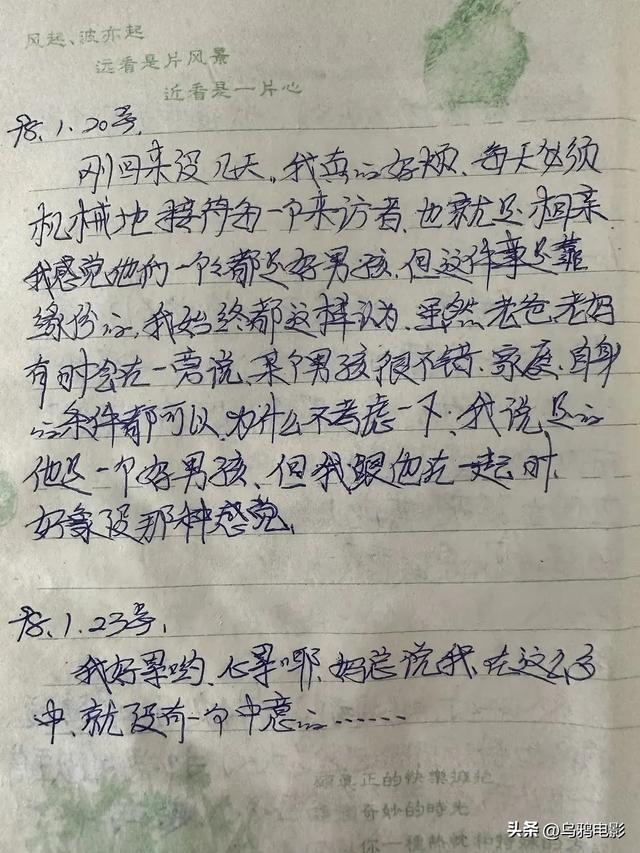 风起、波亦起
远看是片风景
近看是一片心
98.1.20号.
刚回来没几天。我真的好烦、每天必须
机械地接待每一个来访者、也就是相亲
我感觉他们一个个都是好男孩、但这件事是靠
缘份的、我始终都这样认为、虽然老爸、老妈
有时会在一旁说、某个男孩很不错、家庭、自身
的条件都可以、为什么不考虑一下、我说是的
他是一个好男孩、但我跟他在一起时、
好象没那种感觉、
98.1.23号.
我好累哟、心累耶、妈总说我、在这么多
中、就没有一个中意的……
正的快樂擁抱
奇妙的時光
你一種熱忱和
头条 @乌鸦电影